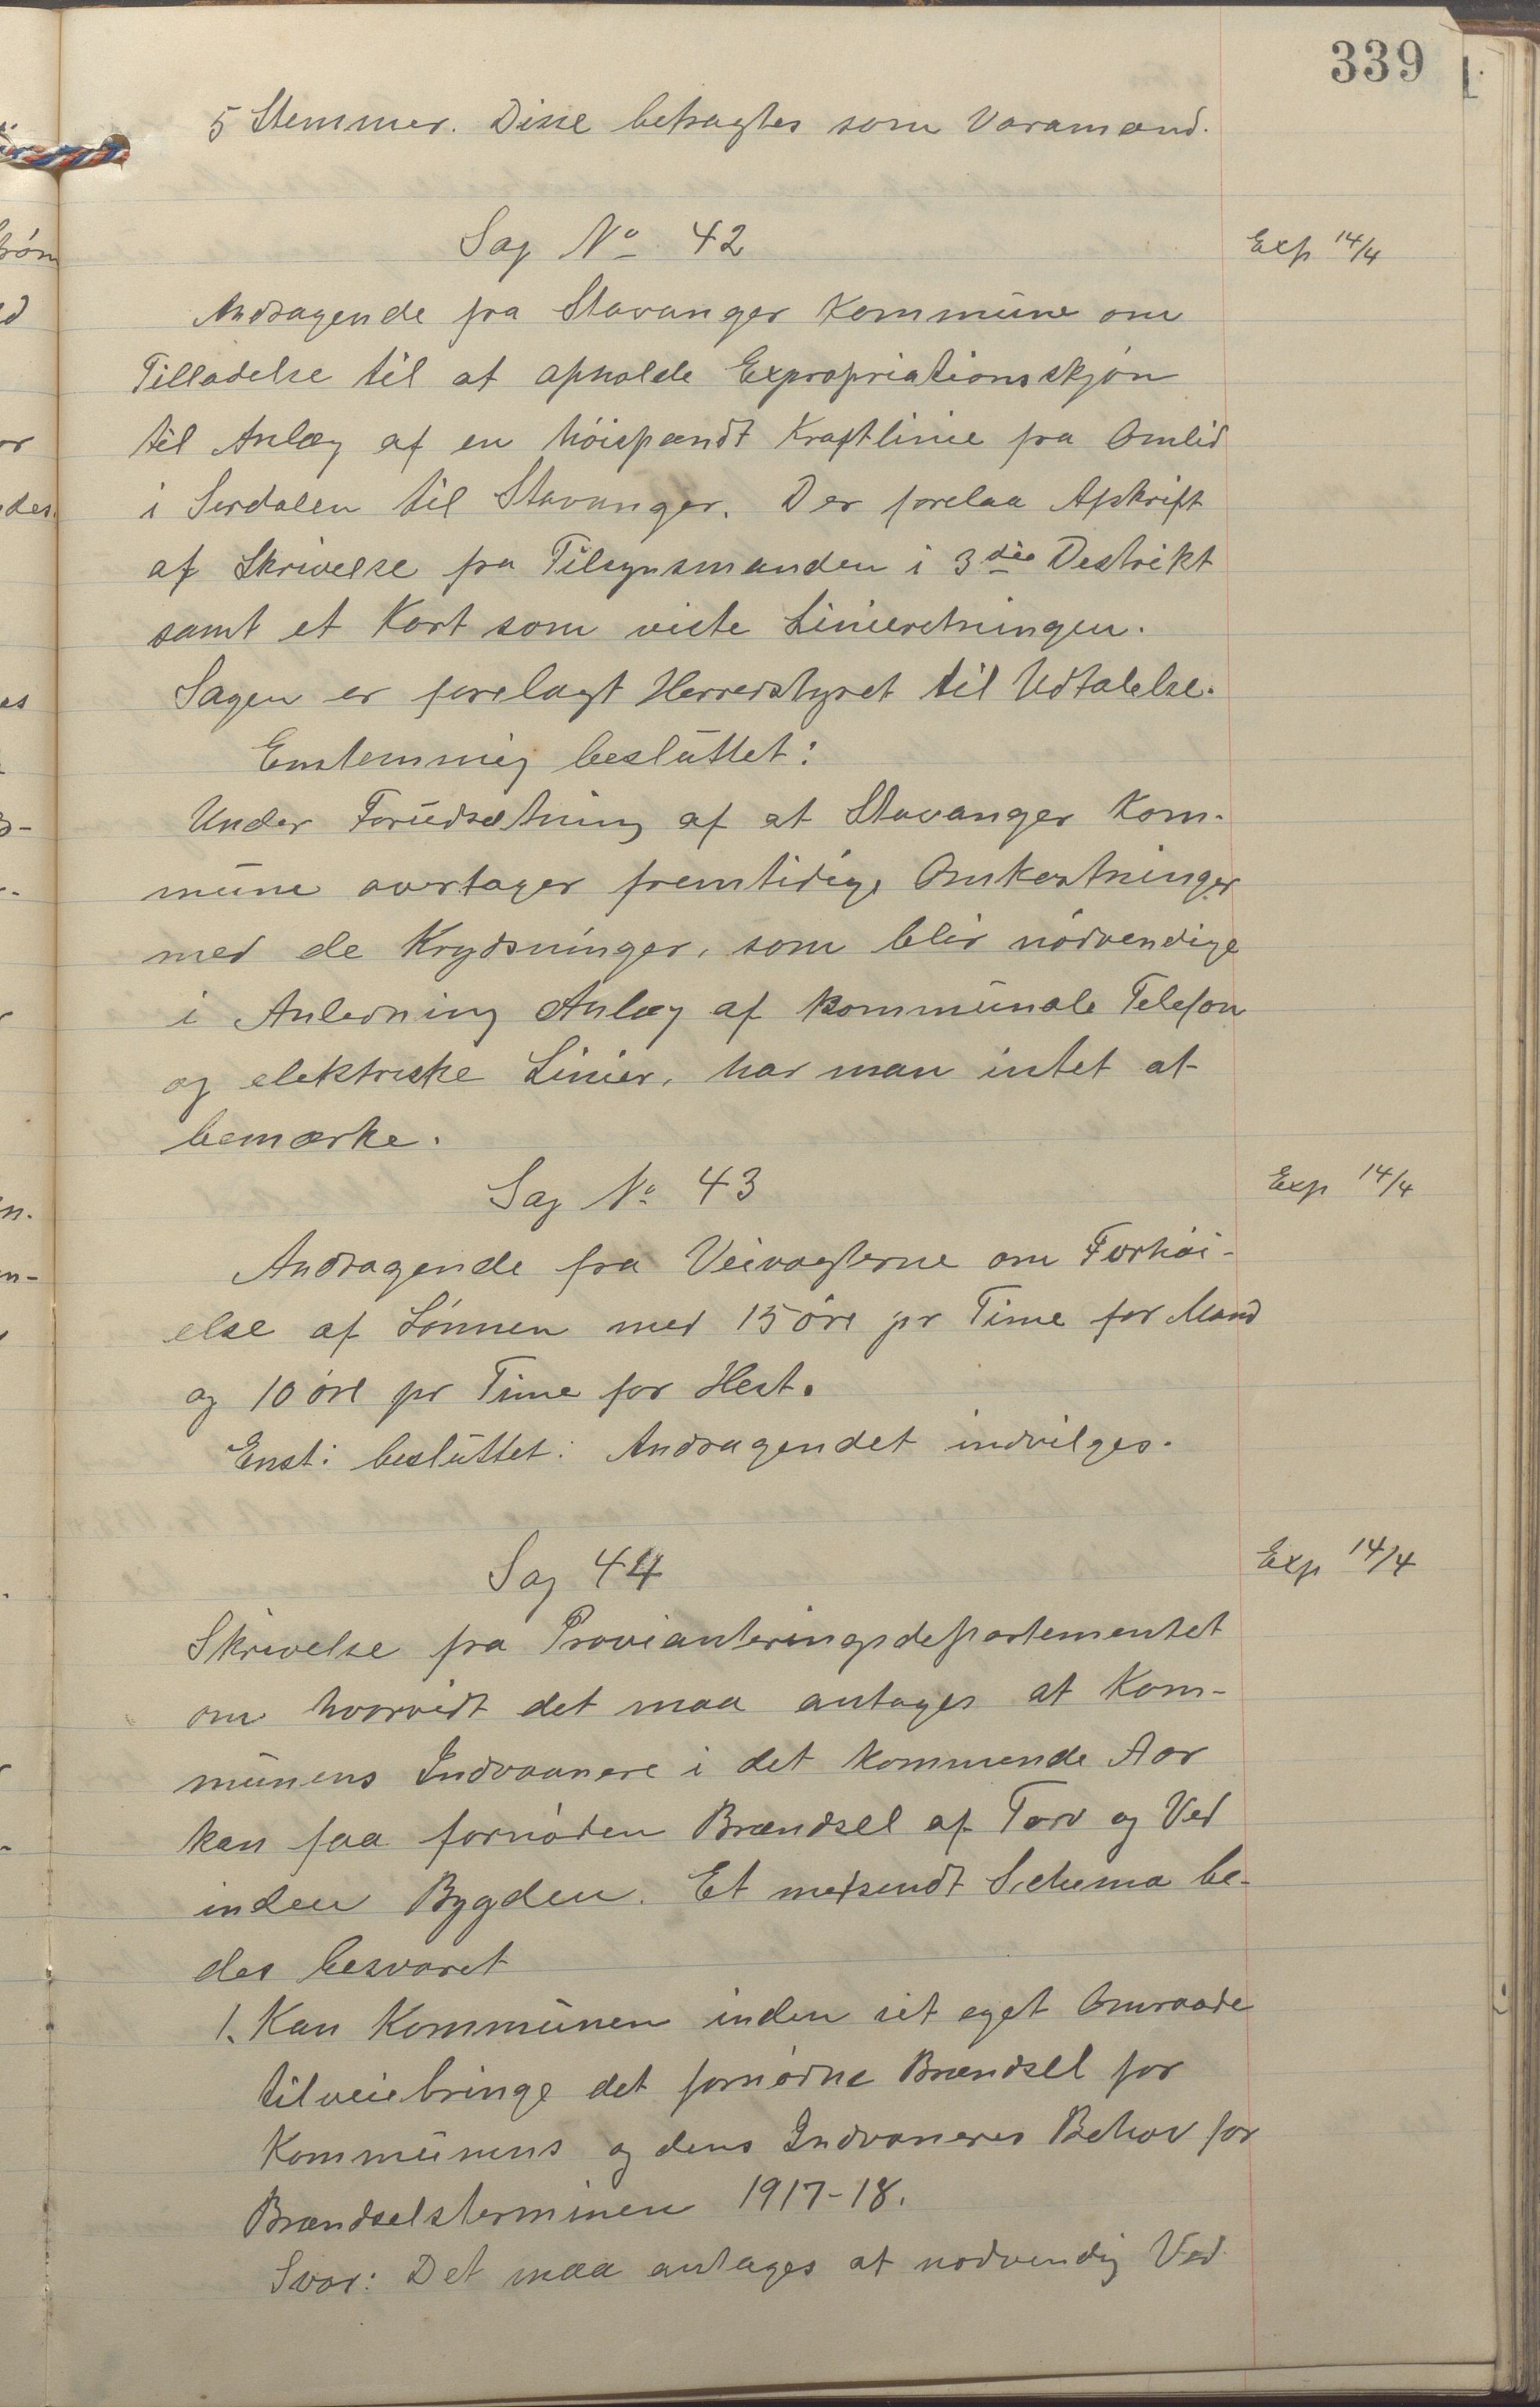 339
5 Stemmer. Disse betragtes som Varamænd.
Sag No 42
Exp 14/4
Andragende fra Stavanger Kommune om
Tilladelse til at afholde Expropriationsskjøn
til Anlæg af en høispændt Kraftlinie fra Omlid
i Sirdalen til Stavanger. Der forelaa Afskrift
af Skrivelse fra Tilsynsmanden i 3die Destrikt
samt et Kart som viste Linieretningen.
Sagen er forelagt Herredstyret til Udtalelse.
Enstemmig besluttet:
Under Forudsætning af at Stavanger Kom-
mune overtager fremtidige Omkostninger
med de Krydsninger, som blir nødvendige
i Anledning Anlæg af kommunale Telefon
og elektriske Linier, har man intet at
bemærke.
Sag No 43
Exp 14/4
Andragende fra Veivogterne om Forhøi-
else af Lønnen med 15 øre pr Time for Mand
og 10 øre pr Time for Hest.
Enst: besluttet: Andragendet indvilges.
Sag 44
Exp 14/4
Skrivelse fra Provianteringsdepartementet
om hvorvidt det maa antages at Kom-
munens Indvaanere i det kommende Aar
kan faa fornøden Brændsel af Torv og Ved
inden Bygden. Et medsendt Schema be-
des besvaret
1. Kan Kommunen inden sit eget Omraade
tilveiebringe det fornødne Brændsel for
Kommunens og dens Indvaneres Behov for
Brændselsterminen 1917-18.
Svar: Det maa antages at nødvendig Ved